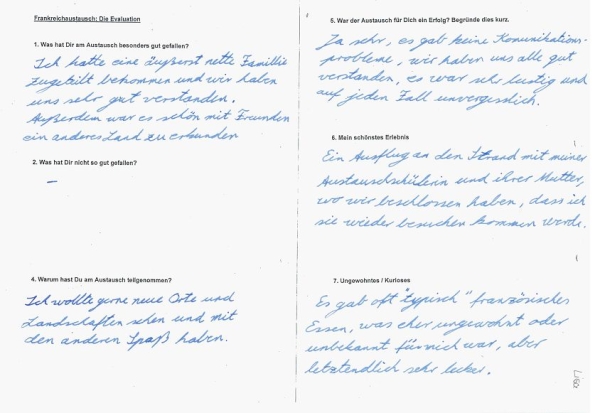 Frankreichaustausch: Die Evaluation
1. Was hat Dir am Austausch besonders gut gefallen?
Ich hatte eine äußerst nette Familie
zugeteilt bekommen und wir haben
uns sehr gut verstanden.
Außerdem war es schön mit Freunden
ein anderes Land zu erkunden
2. Was hat Dir nicht so gut gefallen?
–
4. Warum hast Du am Austausch teilgenommen?
Ich wollte gerne neue Orte und
Landschaften sehen und mit
den anderen Spaß haben.
5. War der Austausch für Dich ein Erfolg? Begründe dies kurz.
Ja sehr, es gab keine Komunikations-
probleme, wir haben uns alle gut
verstanden, es war sehr lustig und
auf jeden Fall unvergesslich.
6. Mein schönstes Erlebnis
Ein Ausflug an den Strand mit meiner
Austauschschülerin und ihrer Mutter,
wo wir beschlossen haben, dass ich
sie wieder besuchen kommen werde.
7. Ungewohntes / Kurioses
Es gab oft "typisch" französisches
Essen, was eher ungewohnt oder
unbekannt für mich war, aber
letztendlich sehr lecker.